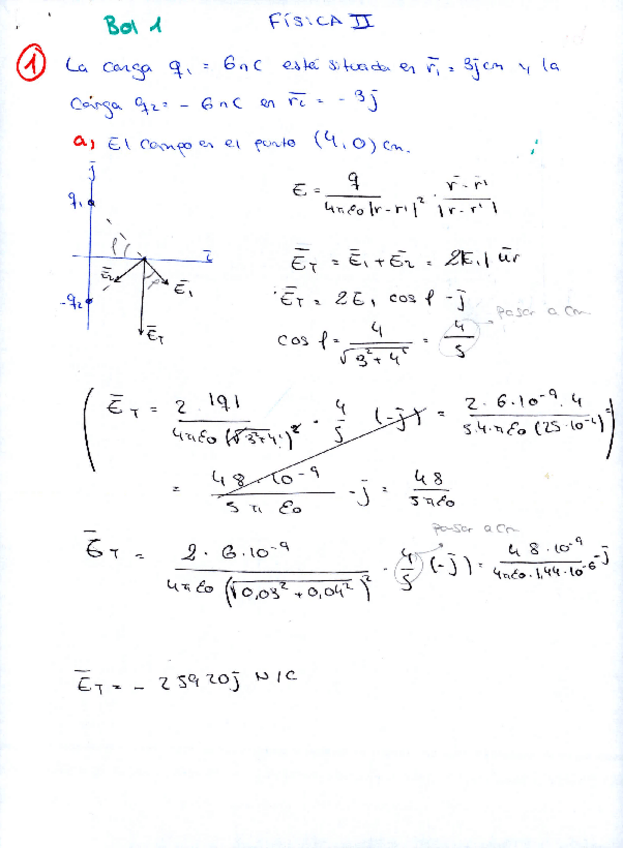 Bol 1 FÍSICA II
① La carga q₁ = 6nC está situada en r̄₁ = 3j cm y la
carga q₂ = - 6nC en r̄₂ = - 3j
a) El campo en el punto (4,0) cm.
j
q₁
i
φ
Ē₂ Ē₁
-q₂
Ē_T
E = q / 4πε₀|r-r'|² · r̄-r̄' / |r-r'|
Ē_T = Ē₁ + Ē₂ = 2|E₁| ūr
Ē_T = 2E₁ cos φ - j̄
pasar a cm
cos φ = 4 / √(3²+4²) = 4/5
( Ē_T = 2·|q| / 4πε₀(√3²+4²)² · 4/5 (-j̄) = 2·6·10⁻⁹·4 / 5·4·πε₀(25·10⁻⁴) =
= 48·10⁻⁹ / 5π ε₀ - j̄ = 48 / 5πε₀ )
pasar a cm
Ē_T = 2·6·10⁻⁹ / 4πε₀(√0,03²+0,04²)² · 4/5 (-j̄) = 48·10⁻⁹ / 4πε₀·1,44·10⁻⁶ -j̄
Ē_T = - 25920j̄ N/C